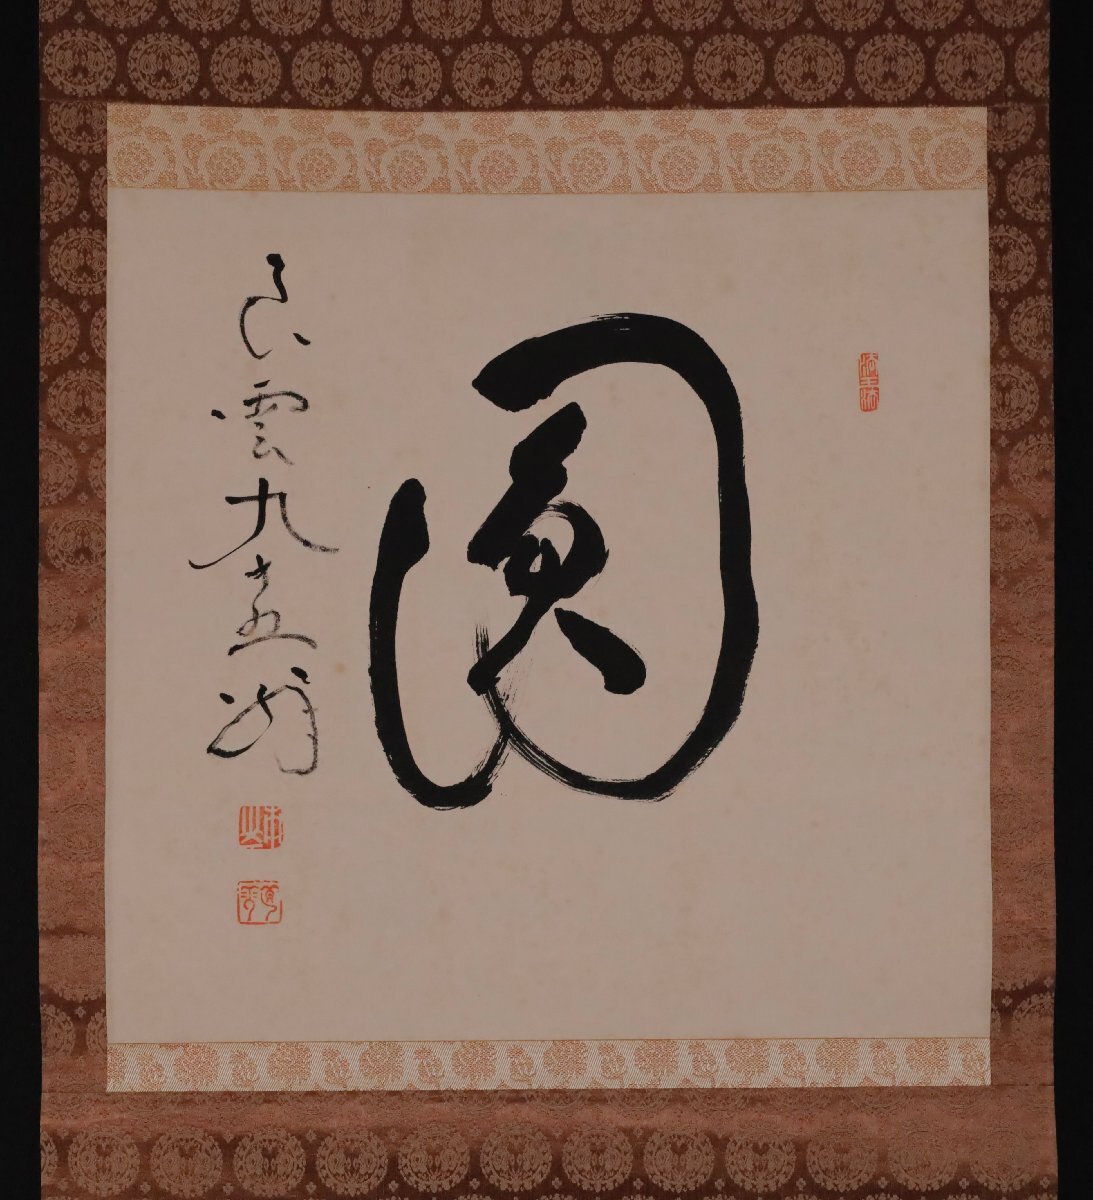 圓
良雲九十五翁